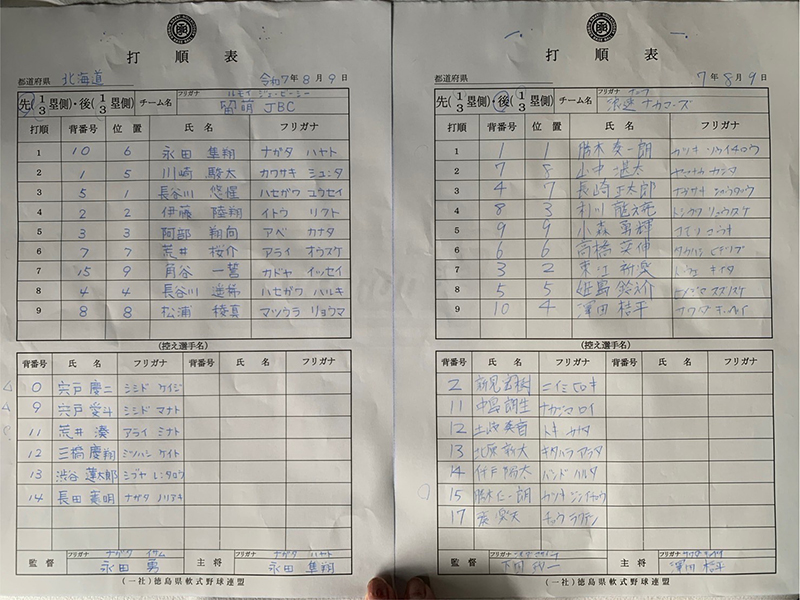 打順表
都道府県 北海道 令和7年8月9日
先(1/3塁側)・後(1/3塁側) チーム名 フリガナ ルモイ ジェービーシー
留萌 JBC
打順 背番号 位置 氏名 フリガナ
1 10 6 永田 隼翔 ナガタ ハヤト
2 1 5 川崎 駿太 カワサキ シュンタ
3 5 1 長谷川 悠惺 ハセガワ ユウセイ
4 2 2 伊藤 陸翔 イトウ リクト
5 3 3 阿部 翔向 アベ カナタ
6 7 7 荒井 桜介 アライ オウスケ
7 15 9 角谷 一誓 カドヤ イッセイ
8 4 4 長谷川 ハセガワ ハルキ
9 8 8 松浦 稜真 マツウラ リョウマ
(控え選手名)
背番号 氏名 フリガナ 背番号 氏名 フリガナ
0 宍戸 慶二 シシド ケイジ
9 宍戸 愛斗 シシド マナト
11 荒井 湊 アライ ミナト
12 三橋 慶翔 ミツハシ ケイト
13 渋谷 蓮太郎 シブヤ レンタロウ
14 長田 憲明 ナガタ ノリアキ
監督 フリガナ ナガタ イサム 主将 フリガナ ナガタ ハヤト
永田 勇 永田 隼翔
(一社)徳島県軟式野球連盟
打順表
都道府県 7年8月9日
先(1/3塁側)・後(1/3塁側) チーム名 フリガナ
ナカマーズ
打順 背番号 位置 氏名 フリガナ
1 1 1 勝木 奏一朗 カツキ ソウイチロウ
2 7 8 山中 湛太 ヤマナカ カンタ
3 4 7 長崎 正太郎 ナガサキ ショウタロウ
4 8 3 利川 トシカワ リョウスケ
5 9 9 小森 勇輝 コモリ ユウキ
6 6 6 高橋 英伸 タカハシ ヒデノブ
7 3 2
8 5 5 鈴之介 スズノスケ
9 10 4 澤田 桔平 サワダ キッペイ
(控え選手名)
背番号 氏名 フリガナ 背番号 氏名 フリガナ
2 新見 ニイミ ヒロキ
11 中島 朗生 ナカジマ ロイ
12 土岐 トキ
13 北原 新大 キタハラ アラタ
14 陽太 バンドウ ハルタ
15 勝木 仁一朗 カツキ ジンイチロウ
17 楽天 チョウ ラクテン
監督 フリガナ 主将 フリガナ サワダ キッペイ
下岡 澤田 桔平
(一社)徳島県軟式野球連盟